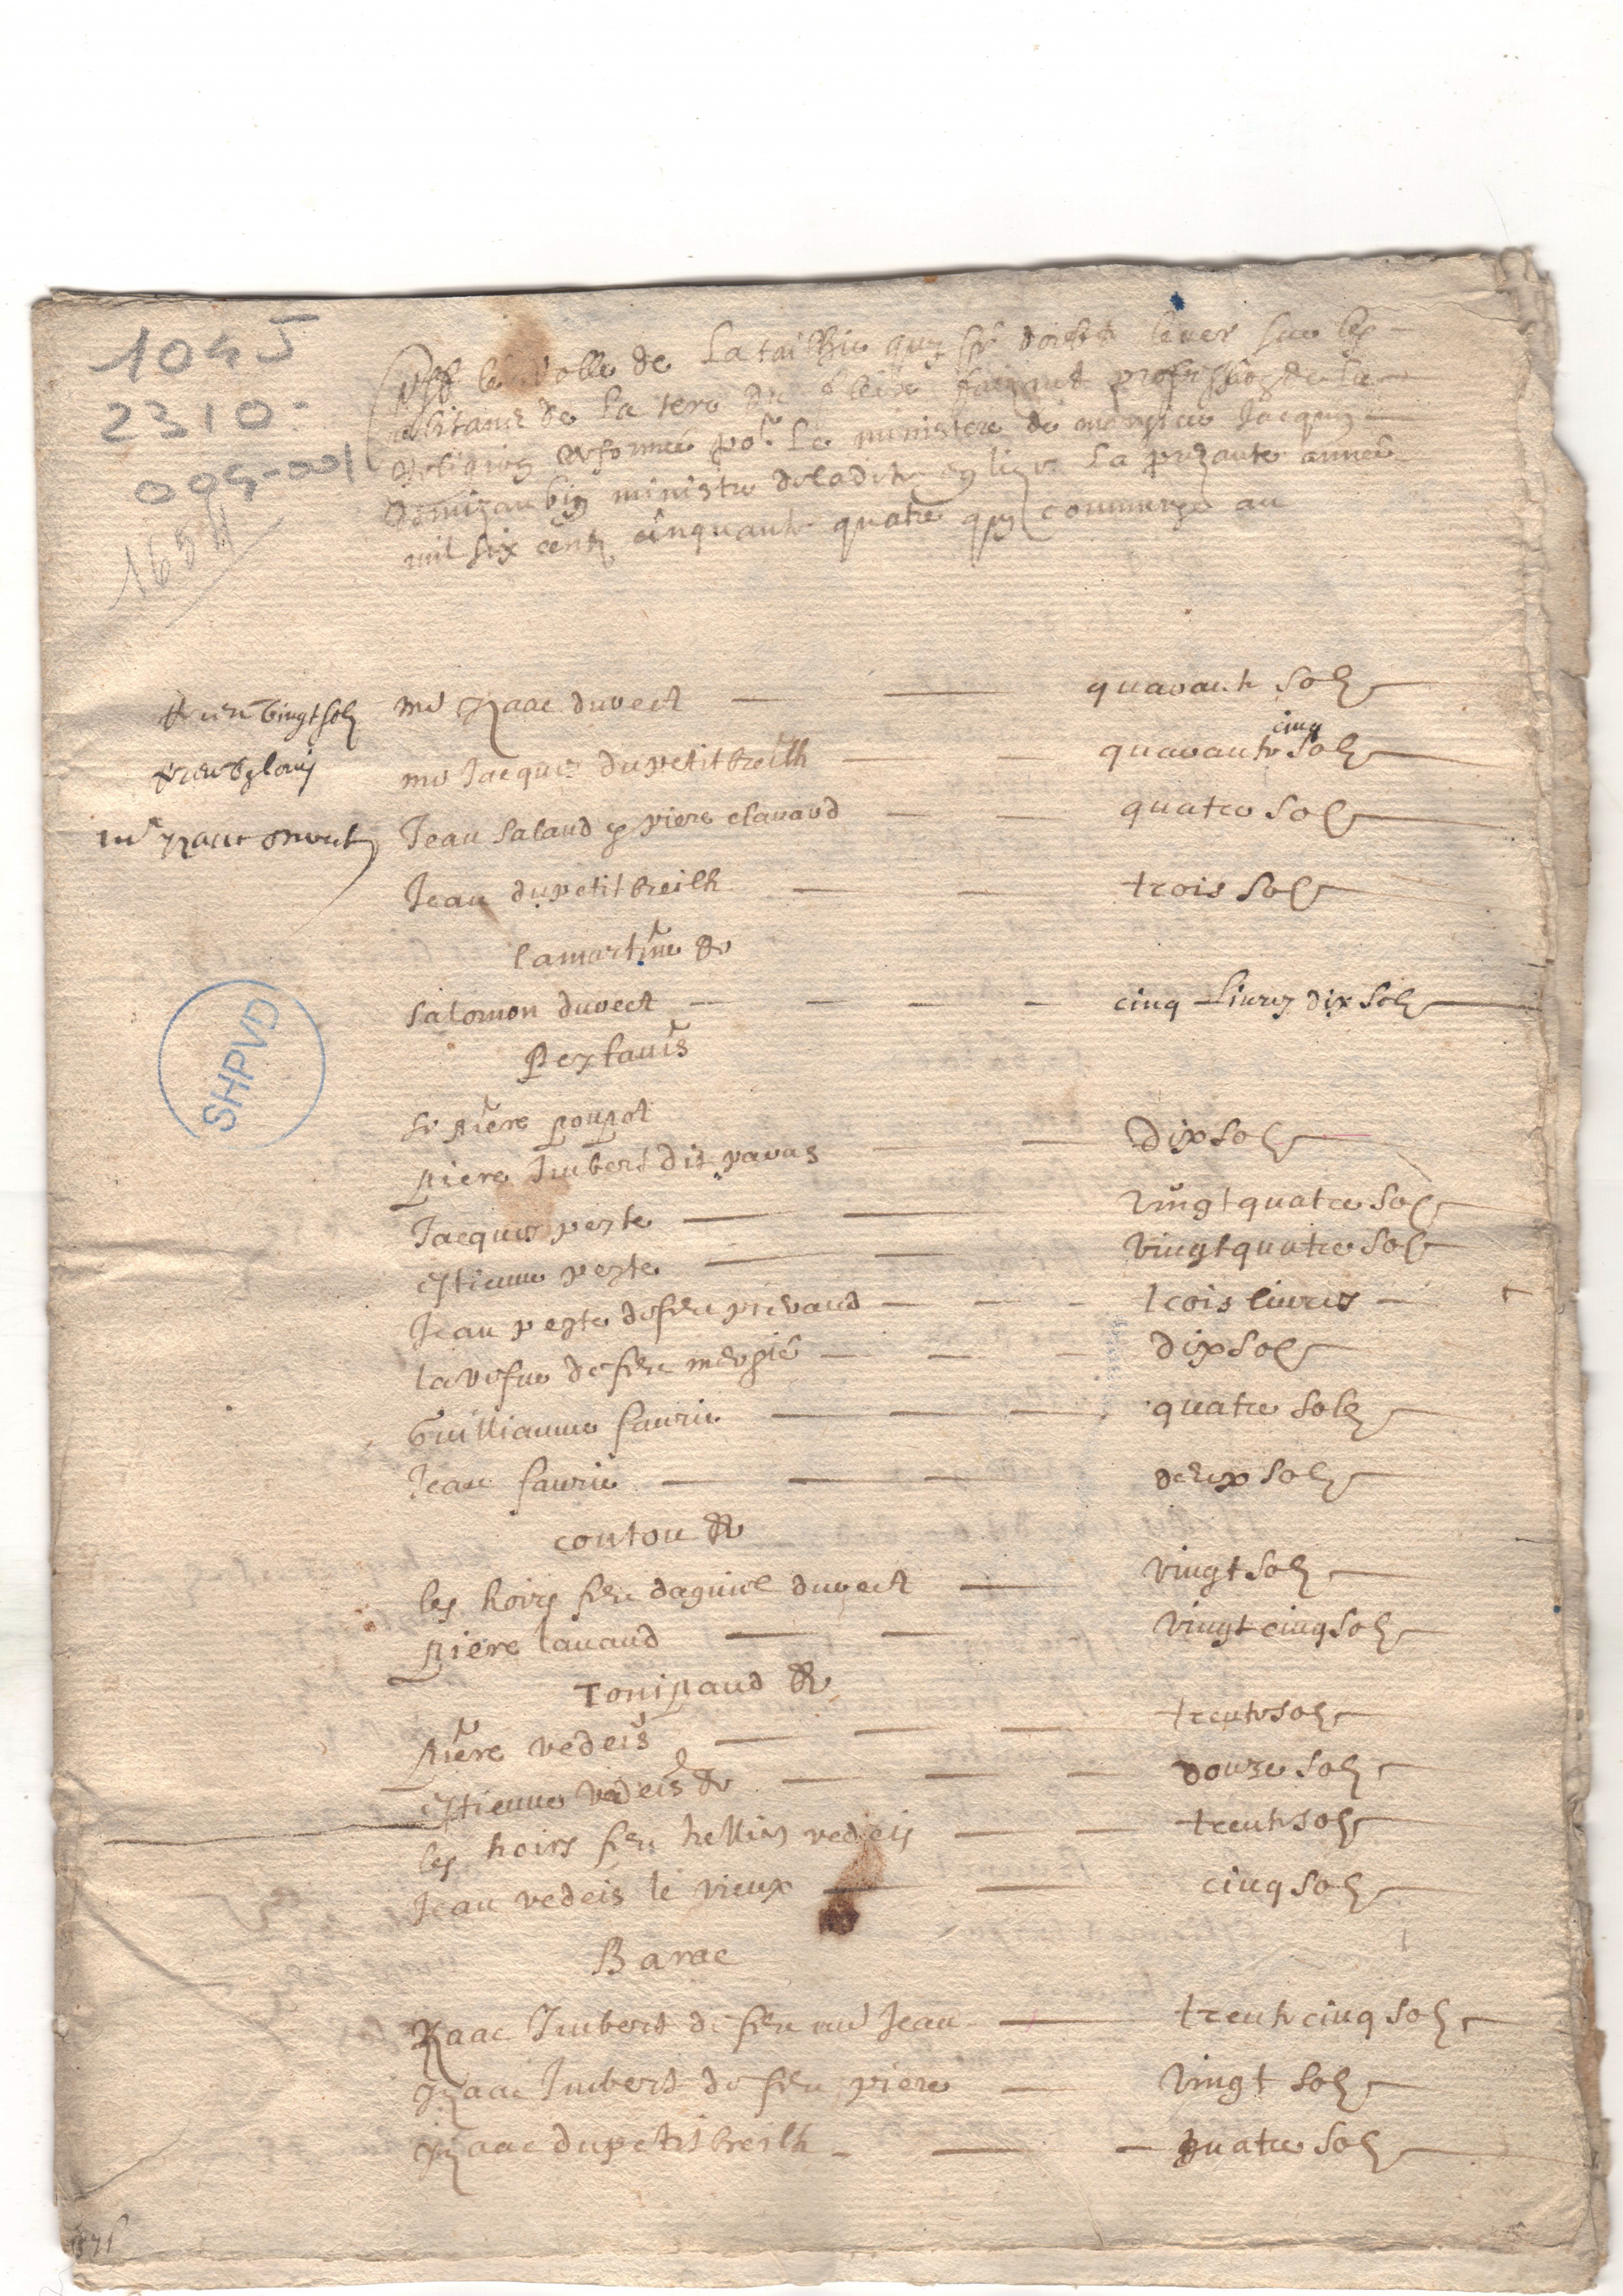 1045
2310:
009-001
1654
le Rolle de la tailhie quy se doibt lever sur les
abitans de la tere de fleix faizant profession de la
Religion reformée por le ministere de monsieur Jacques
ministre de ladite esglize la prezante année
mil six cens cinquante quatre quy commence au
vingt solz
mr Izaac duvect quarante solz
mr Jacques du petit breilh quarante cinq solz
Jean Salaud & piere clavaud quatre solz
mr Izaac
Jean du petit breilh trois solz
lamartine
Salomon duvect cinq livres dix solz
Peytavis
Sr Piere poupot
Piere Imbert dit dix solz
Jacques peyte vingt quatre solz
estienne peyte vingt quatre solz
Jean peyte de feu prevaud trois livres
la vefue de feu dix solz
Guilliaume faurie quatre solz
Jean faurie deux solz
contou
les hoirs feu dagniel duvect vingt solz
Piere lavaud vingt cinq solz
Tonipaud
Piere vedeis trente solz
estienne vedeis douze solz
les hoirs feu hellies vedeis trente solz
Jean vedeis le vieux cinq solz
Barac
Izaac Imbert de feu md Jean trente cinq solz
Izaac Imbert de feu piere vingt solz
Izaac du petit breilh quatre solz
SHPVD